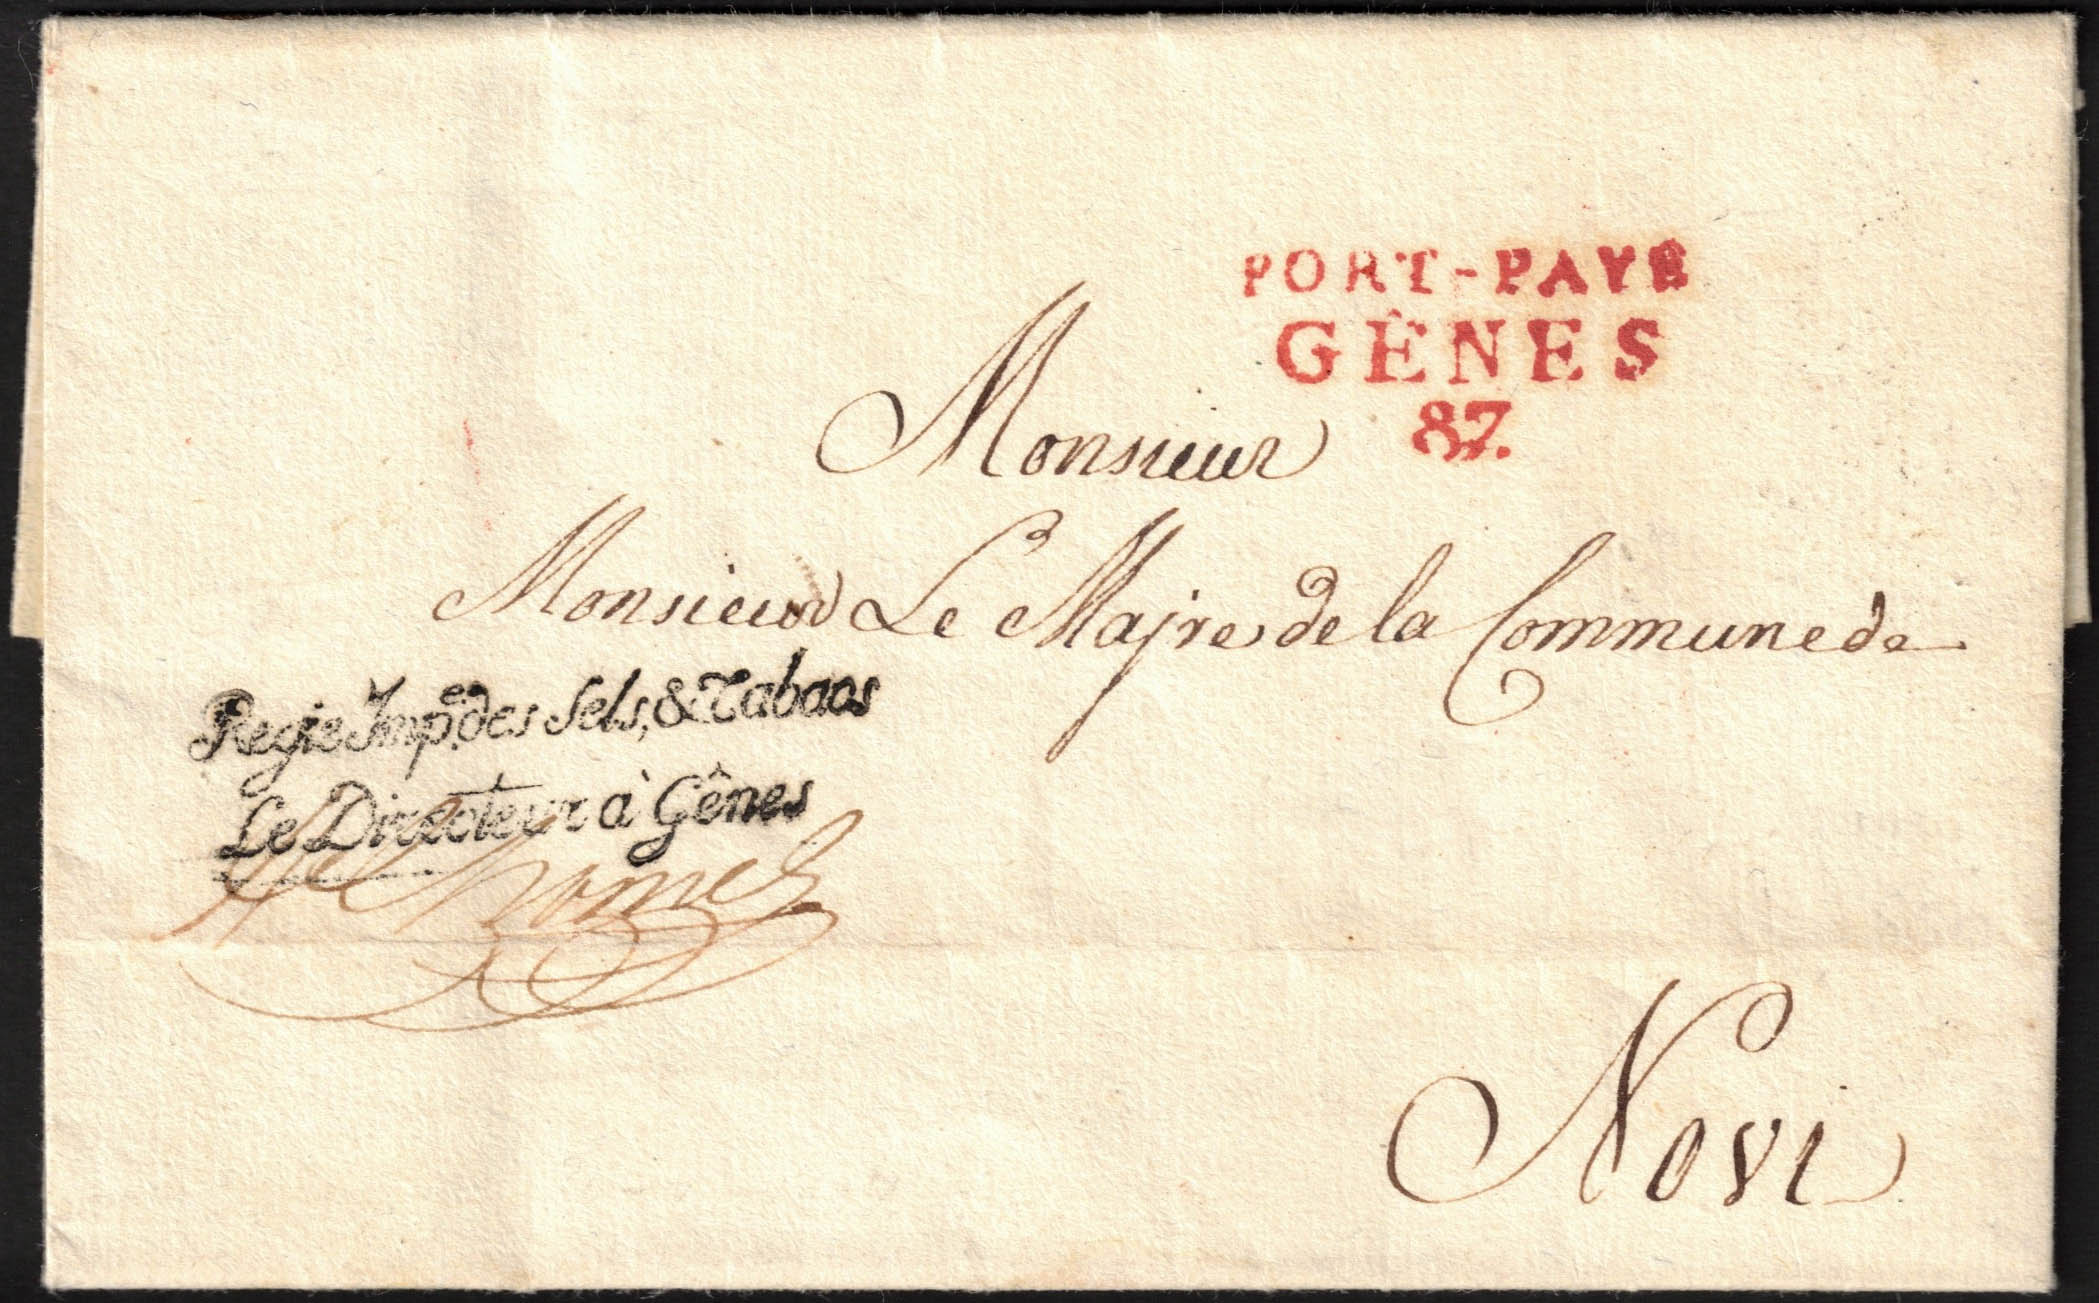 PORT-PAYÉ
GÊNES
87.
Monsieur
Monsieur Le Majre de la Commune de
Regie Imp.e des Sels, & Tabacs
Le Directeur à Gênes
Novi